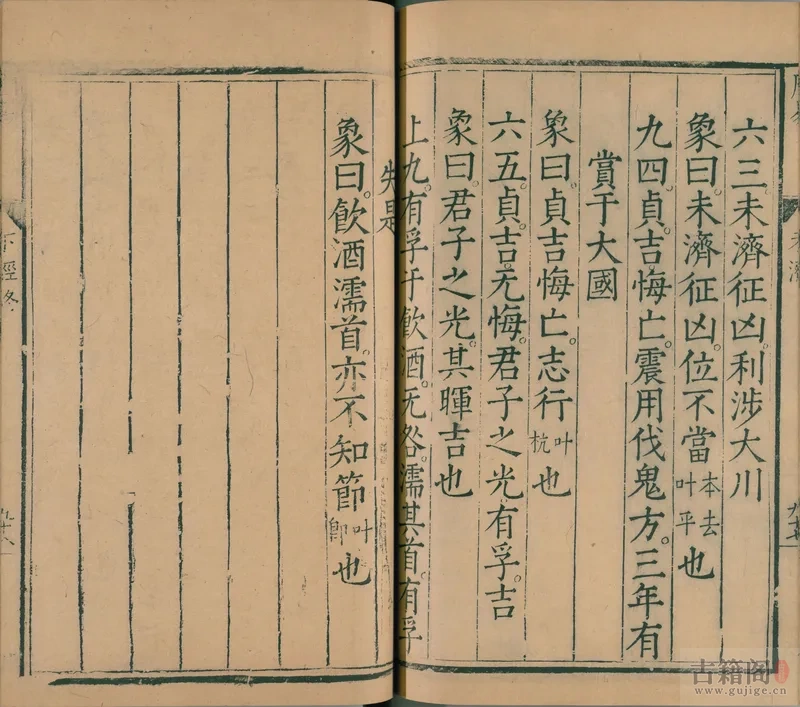 六三未濟征凶利涉大川
象曰未濟征凶位不當本去叶平也
九四貞吉悔亡震用伐鬼方三年有
賞于大國
象曰貞吉悔亡志行叶杭也
六五貞吉无悔君子之光有孚吉
象曰君子之光其暉吉也
上九有孚于飲酒无咎濡其首有孚
失是
象曰飲酒濡首亦不知節叶卽也
下經終
九十八
古籍阁
www.gujige.cn